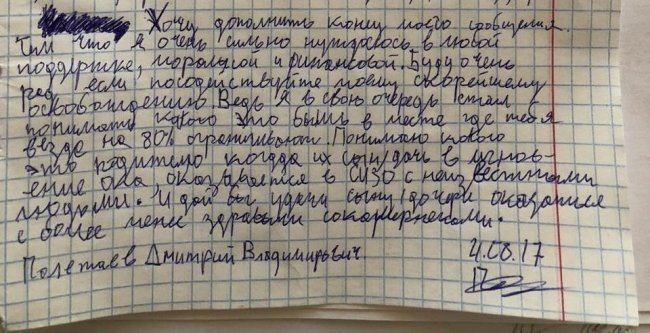 Хочу дополнить конец моего сообщения.
Тем что я очень сильно нуждаюсь в любой
поддержке, моральной и финансовой. Буду очень
рад если посодействуйте моему скорейшему
освобождению. Ведь я в свою очередь стал
понимать какого это выть в месте где тебя
везде на 80% ограничивают. Понимаю какого
это родителю когда их сын/дочь в мгнов-
ение ока оказывается в СИЗО с неизвестными
людьми. И дай бог удачи сыну/дочери оказаться
с более менее здравыми сокамерниками.
Полетаев Дмитрий Владимирович.
4.08.17